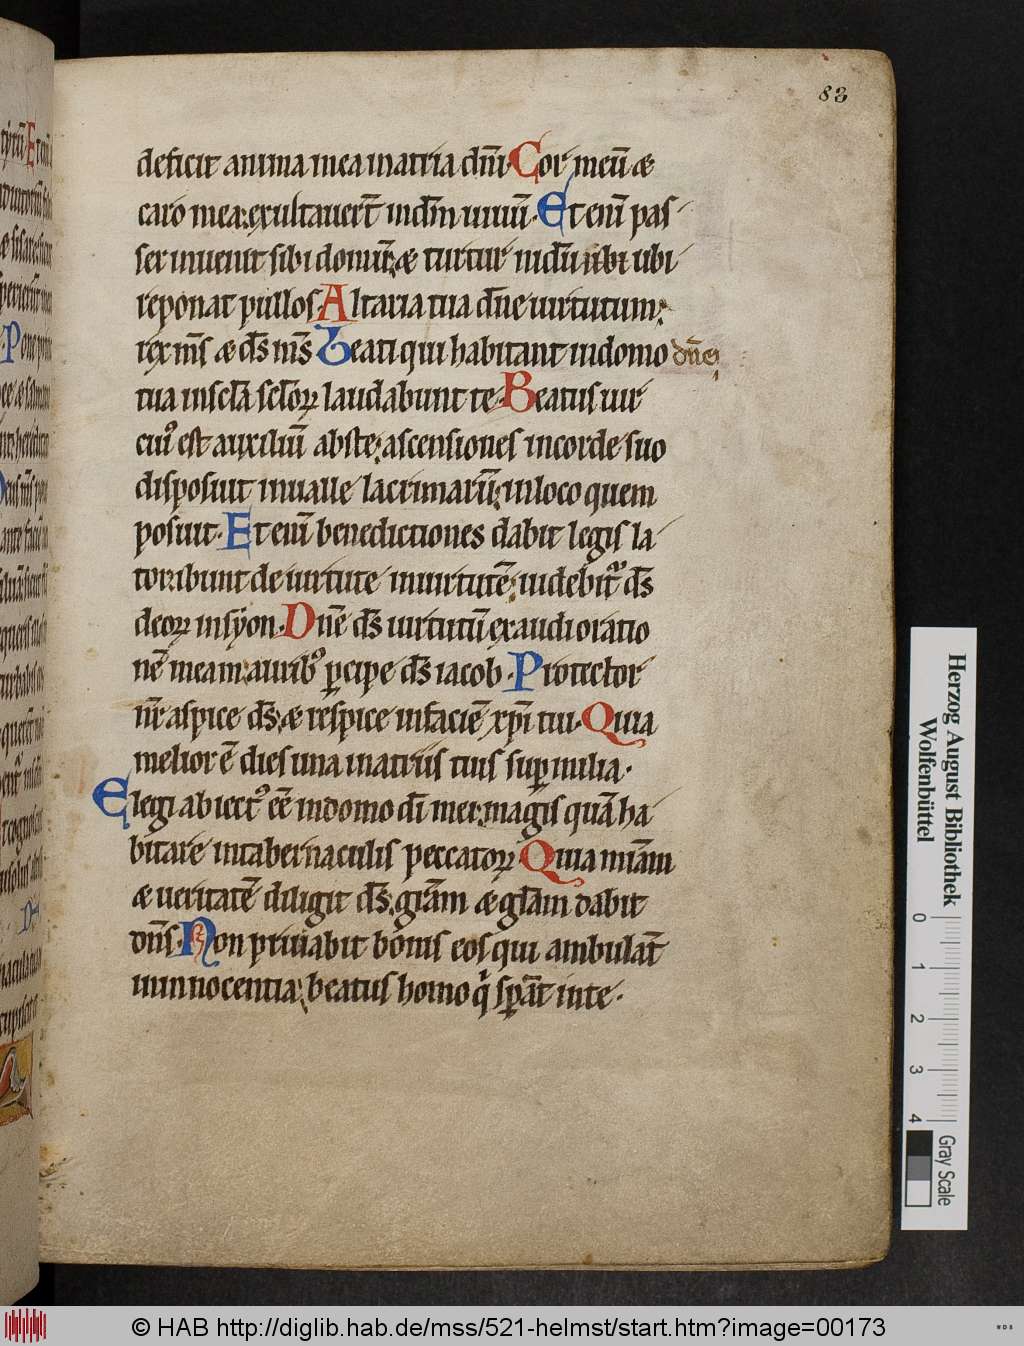 83
deficit anima mea inatria dn̄i· Cor meū æ
caro mea; exultauer̄t indm̄ uiuū· Et enī pas-
ser inuenit sibi domum; æ turtur nidū sibi ubi
reponat pullos· Altaria tua dn̄e uirtutum;
rex ms̄ æ ds̄ ms̄ Beati qui habitant indomo dn̄e
tua insclā sclōꝝ laudabunt te· Beatus uir
cui᷒ est auxiliū abste; ascensiones incorde suo
disposuit inualle lacrimarū; inloco quem
posuit· Et enī benedictiones dabit legis la-
tor ibunt de uirtute inuirtutē; uidebit᷑ ds̄
deoꝝ insyon· Dn̄e ds̄ uirtutū exaudi oratio
nē meam aurib᷒ ꝑcipe ds̄ iacob· Protector
nr̄ aspice ds̄; æ respice infaciē xp̄i tui· Quia
melior ē dies una inatriis tuis suꝑ milia·
Elegi abiect᷒ eē indomo dī mei; magis quā ha-
bitare intabernaculis peccatoꝝ· Quia miām
æ ueritatē diligit ds̄; grām æ glām dabit
dn̄s· Non priuabit bonis eos qui ambulāt
ininnocentia; beatus homo q̇ sꝑāt inte·
Herzog August Bibliothek
Wolfenbüttel
0 1 2 3 4
Gray Scale
© HAB http://diglib.hab.de/mss/521-helmst/start.htm?image=00173